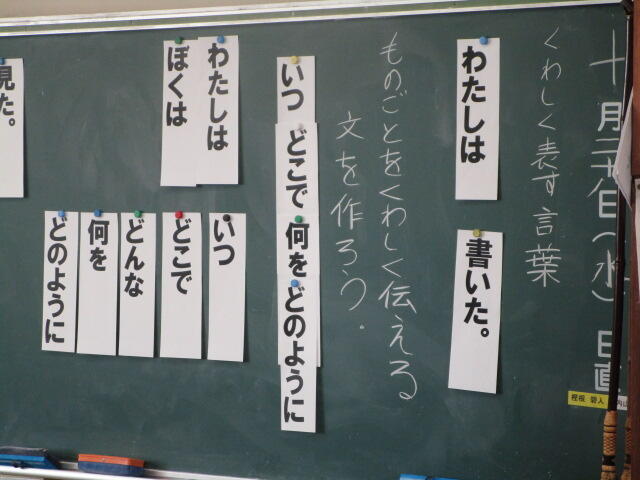 十月二十日(水)日直
くわしく表す言葉
わたしは
書いた。
ものごとをくわしく伝える
文を作ろう.
いつ
どこで
何を
どのように
わたしは
ぼくは
いつ
どこで
どんな
何を
どのように
見た。